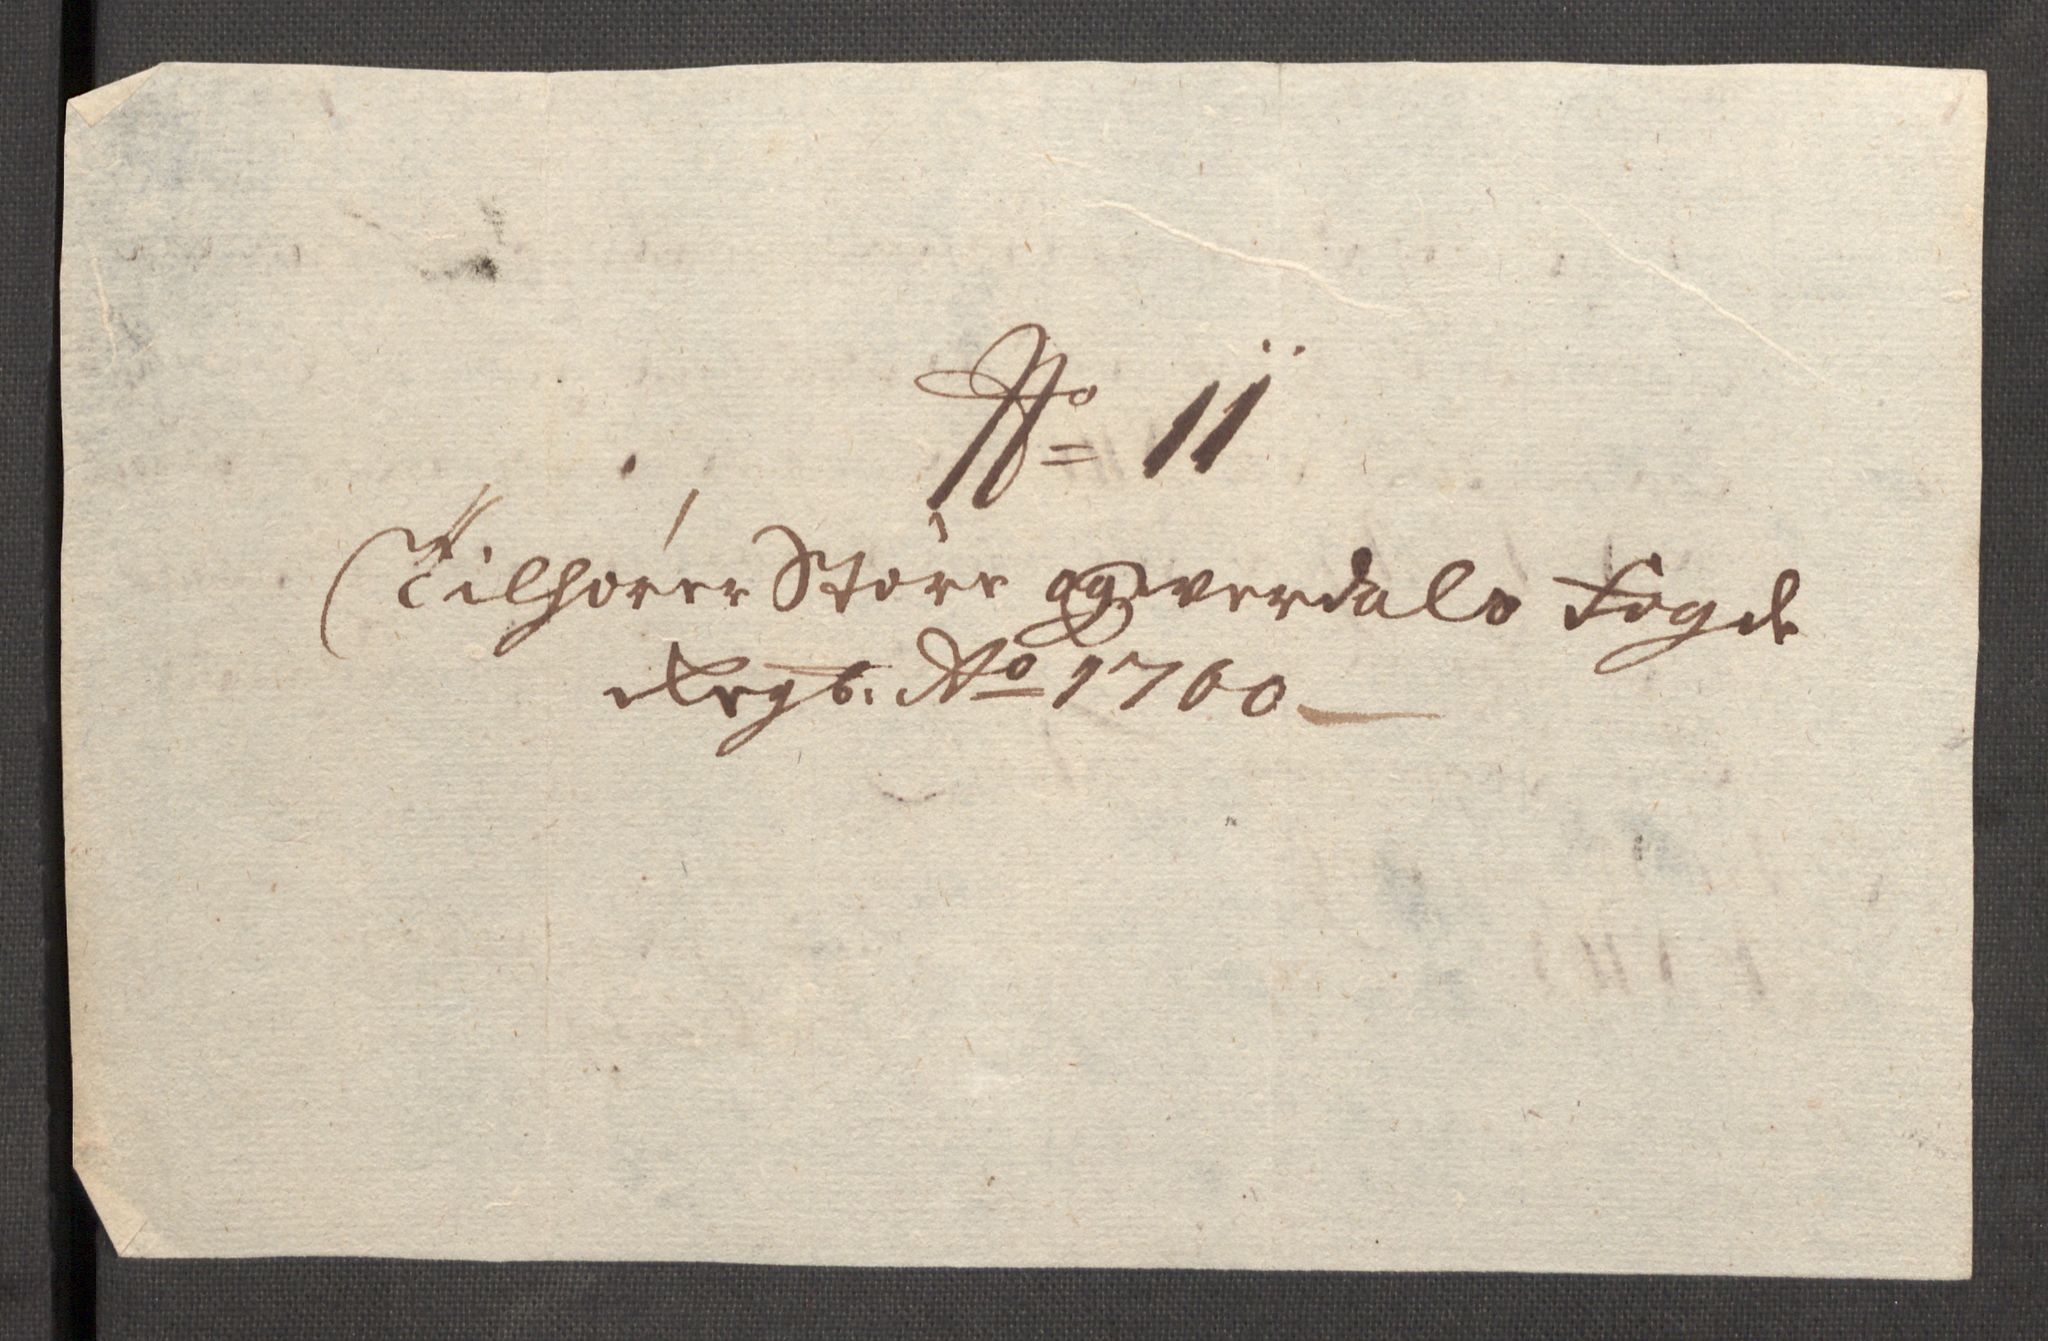 No 11
Tilhörer Störe og Verdals Fogde
Regb. Ao 1700